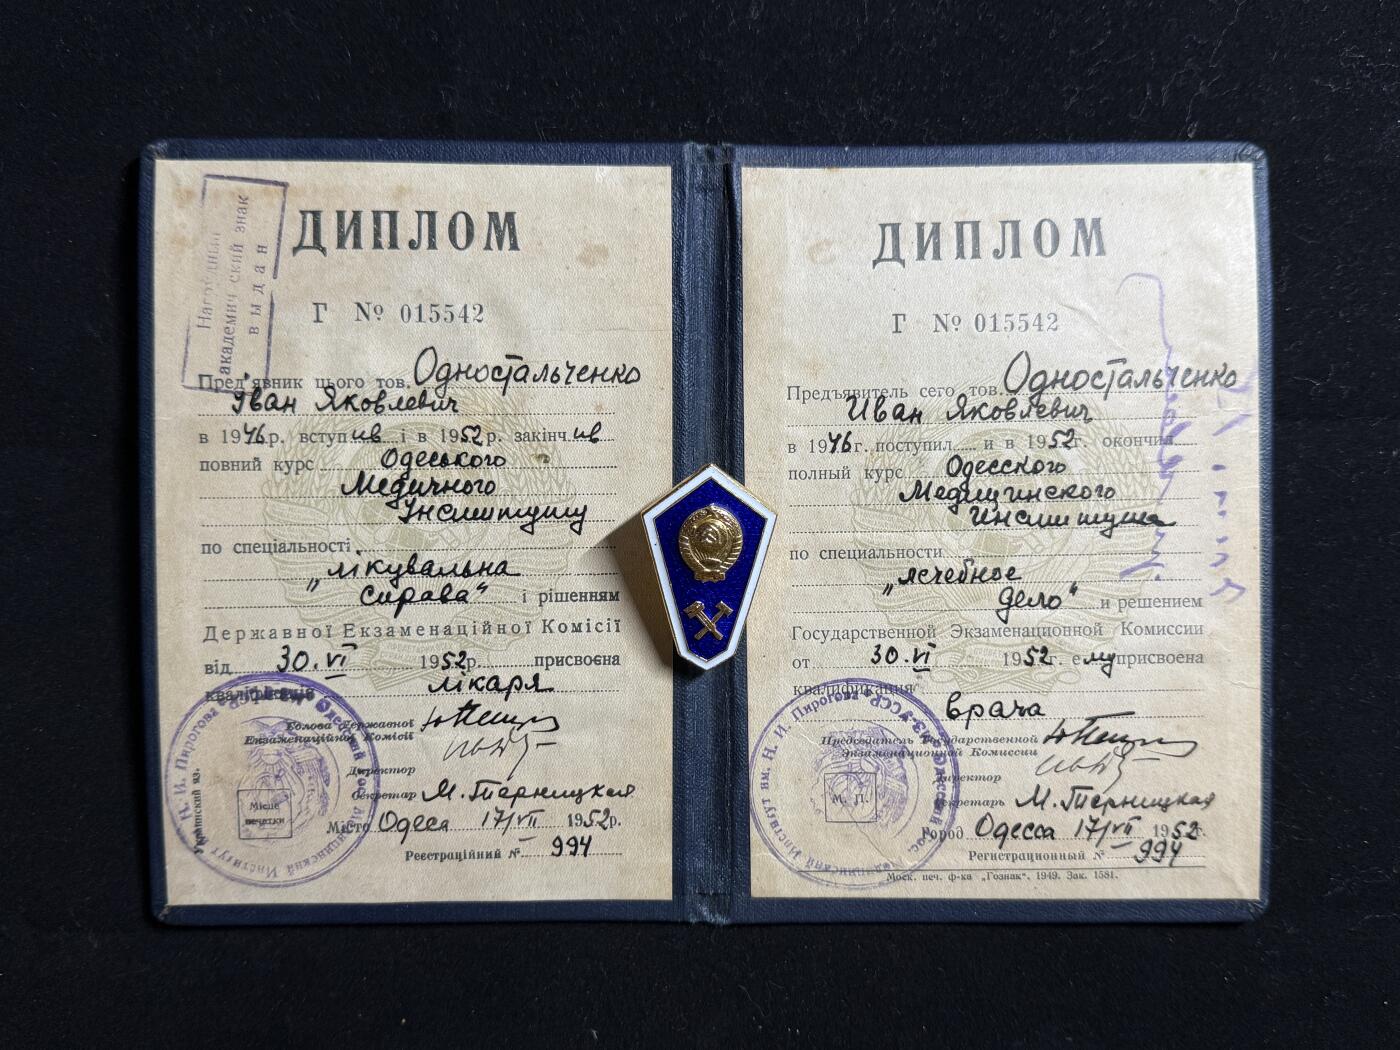 Нагрудный
академический знак
выдан
ДИПЛОМ
Г № 015542
Пред'явник цього тов. Одностальченко
Іван Яковлевич
в 1946 р. вступив і в 1952 р. закінчив
повний курс Одеського
Медичного
Інституту
по спеціальності
„лікувальна
справа" і рішенням
Державної Екзаменаційної Комісії
від 30.VI 1952 р. присвоєна
кваліфікація лікаря
Голова Державної
Екзаменаційної Комісії
Директор
Секретар М. Терницкая
Місто Одеса 17/VII 1952 р.
Реєстраційний № 994
Український яз.
Місце
печатки
ДИПЛОМ
Г № 015542
Предъявитель сего тов. Одностальченко
Иван Яковлевич
в 1946 г. поступил и в 1952 г. окончил
полный курс Одесского
Медицинского
Института
по специальности
„лечебное
дело" и решением
Государственной Экзаменационной Комиссии
от 30.VI 1952 г. ему присвоена
квалификация
врача
Председатель Государственной
Экзаменационной Комиссии
Директор
Секретарь М. Терницкая
М. П.
Город Одесса 17/VII 1952 г.
Регистрационный № 994
Моск. печ. ф-ка „Гознак". 1949. Зак. 1581.